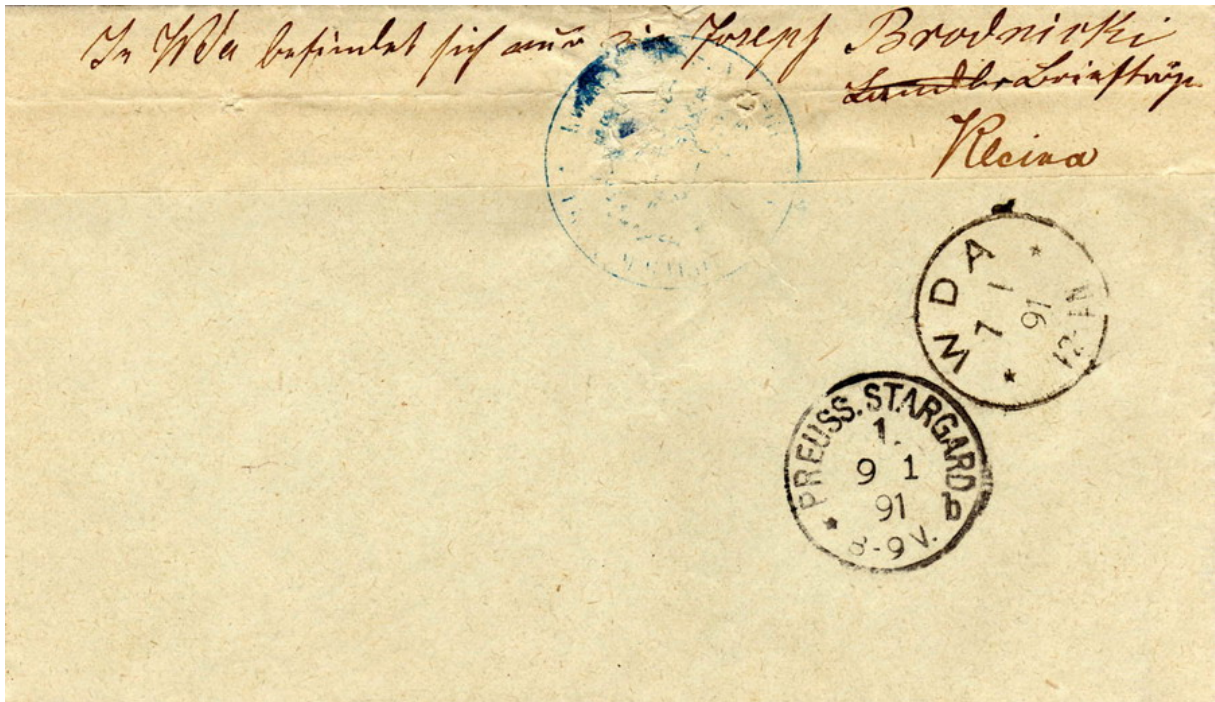 In Wda befindet sich nur ein Joseph Brodnicki
Landbr Briefträger
Klecina
WDA
7 1
91
12-1N
PREUSS. STARGARD
1.
9 1
91
b
8-9 V.